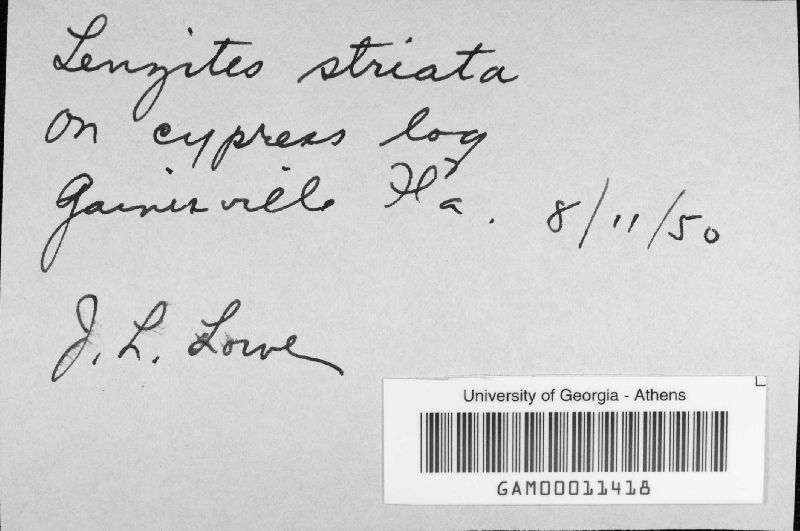 Lenzites striata
on cypress log
Gainesville Fla. 8/11/50
J. L. Lowe
University of Georgia - Athens
GAM00011418